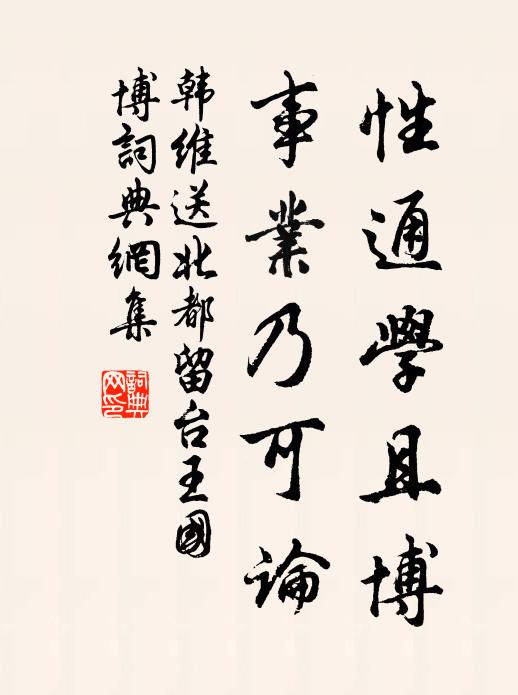 性通學且博
事業乃可論
韩維送北都留台王國
博詞典網集
詞典
网印